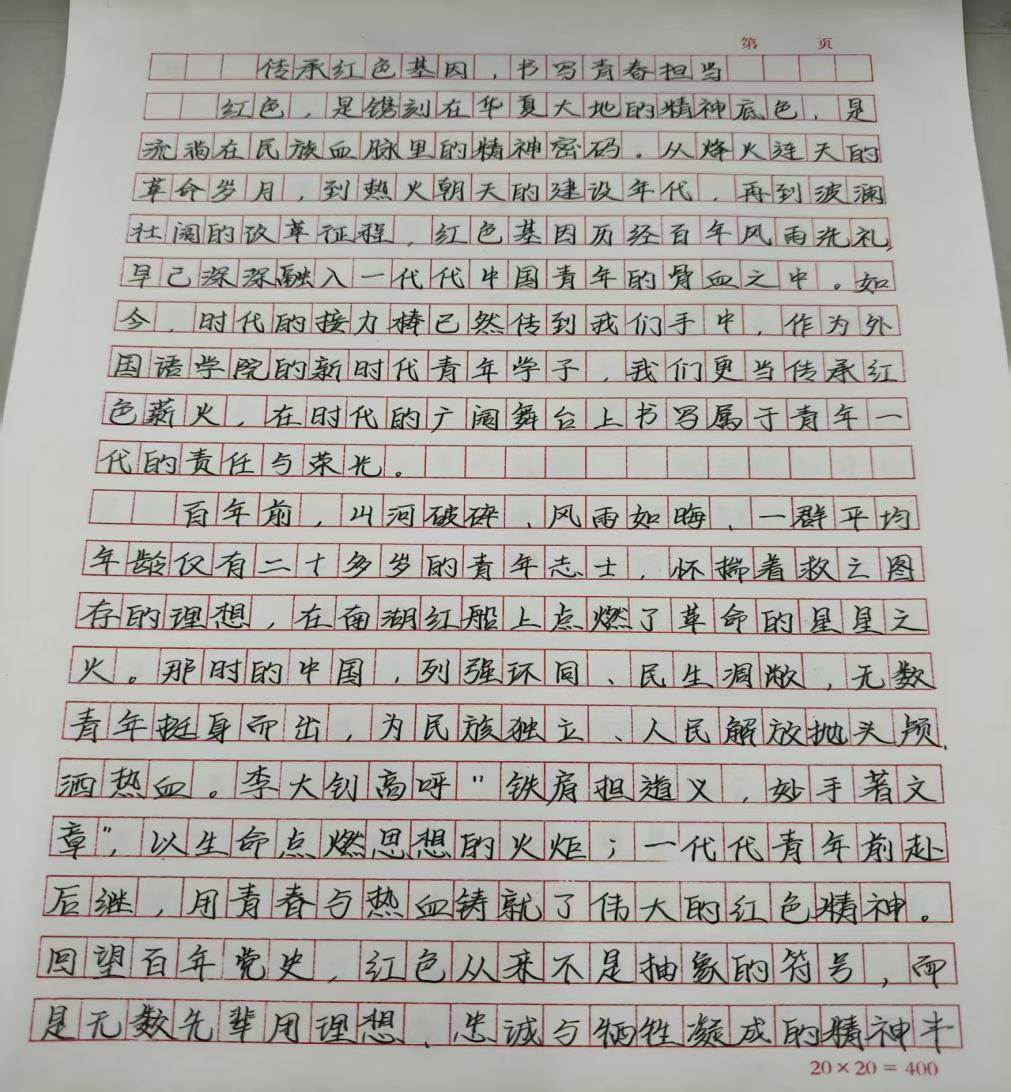 第 页
传承红色基因，书写青春担当
红色，是镌刻在华夏大地的精神底色，是
流淌在民族血脉里的精神密码。从烽火连天的
革命岁月，到热火朝天的建设年代，再到波澜
壮阔的改革征程，红色基因历经百年风雨洗礼，
早已深深融入一代代中国青年的骨血之中。如
今，时代的接力棒已然传到我们手中，作为外
国语学院的新时代青年学子，我们更当传承红
色薪火，在时代的广阔舞台上书写属于青年一
代的责任与荣光。
百年前，山河破碎、风雨如晦，一群平均
年龄仅有二十多岁的青年志士，怀揣着救亡图
存的理想，在南湖红船上点燃了革命的星星之
火。那时的中国，列强环伺、民生凋敝，无数
青年挺身而出，为民族独立、人民解放抛头颅，
洒热血。李大钊高呼“铁肩担道义，妙手著文
章”，以生命点燃思想的火炬；一代代青年前赴
后继，用青春与热血铸就了伟大的红色精神。
回望百年党史，红色从来不是抽象的符号，而
是无数先辈用理想、忠诚与牺牲凝成的精神丰
20×20=400